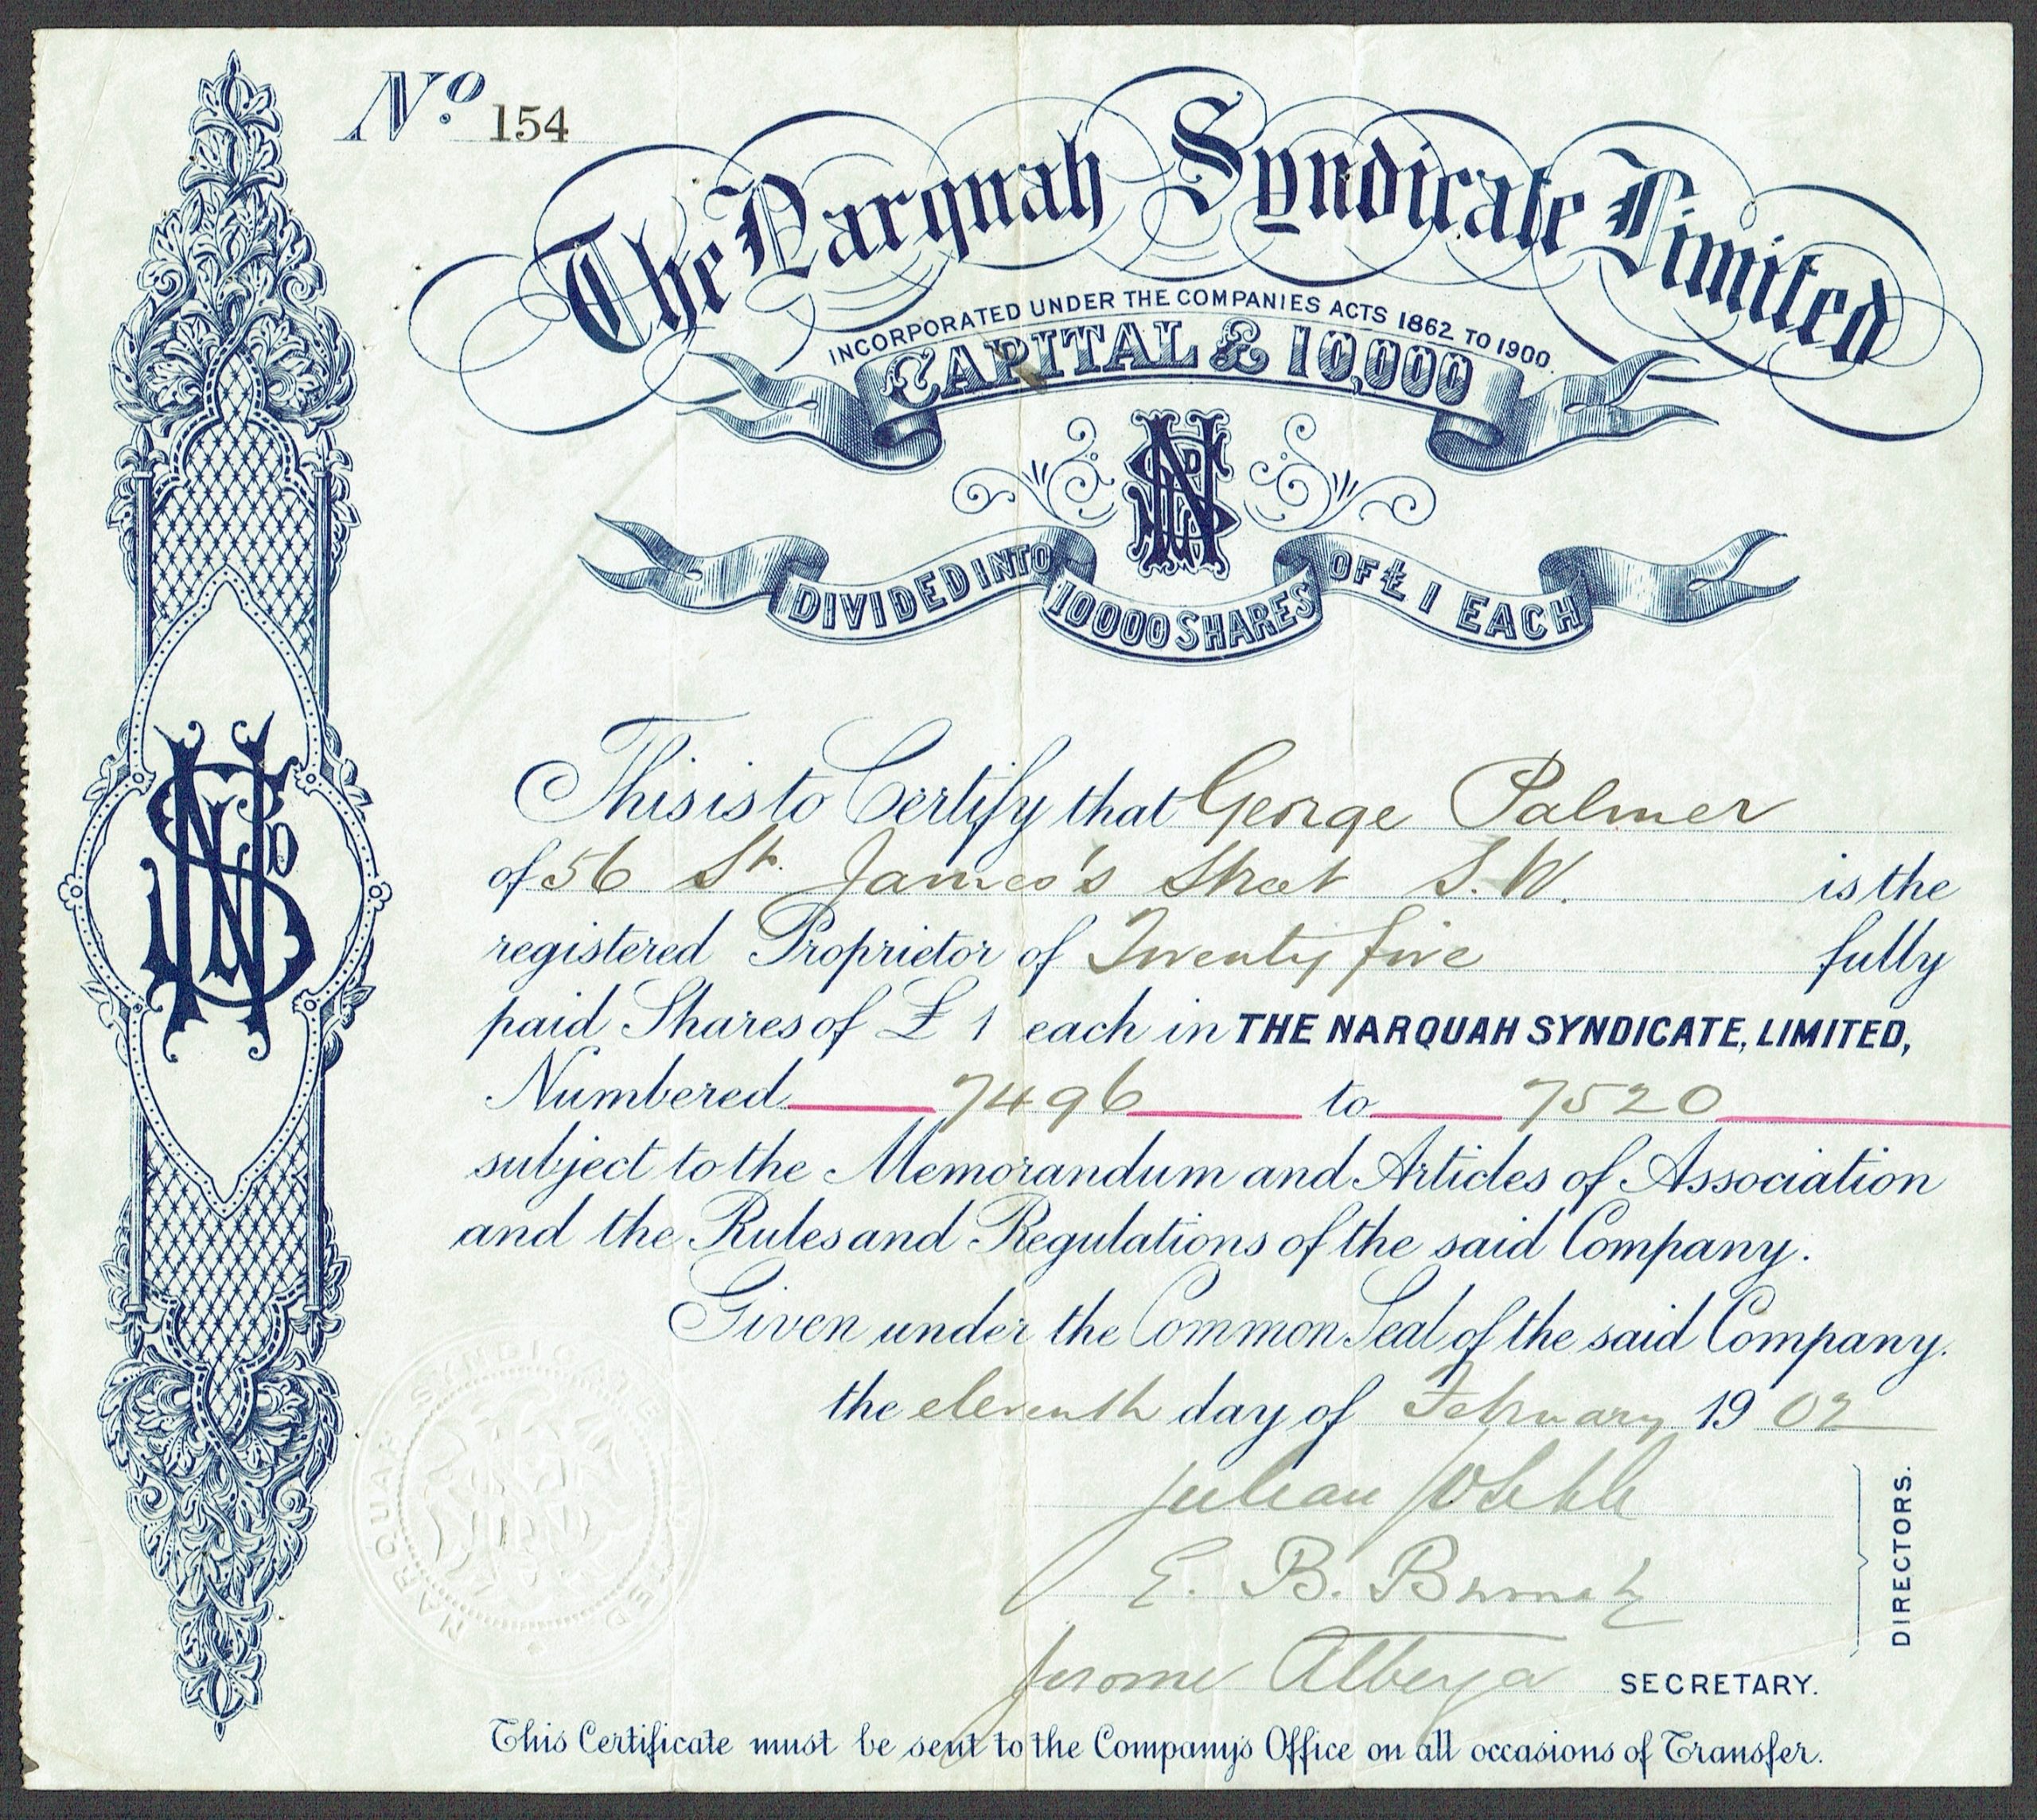 No. 154
The Narquah Syndicate Limited
INCORPORATED UNDER THE COMPANIES ACTS 1862 TO 1900.
CAPITAL £ 10,000
DIVIDED INTO 10000 SHARES OF £ 1 EACH
This is to Certify that George Palmer
of 56 St. James's Street S.W. is the
registered Proprietor of Twenty five fully
paid Shares of £ 1 each in THE NARQUAH SYNDICATE, LIMITED,
Numbered 7496 to 7520
subject to the Memorandum and Articles of Association
and the Rules and Regulations of the said Company.
Given under the Common Seal of the said Company.
the eleventh day of February 1902
Julian
E. B.
DIRECTORS.
Jerome Alberga SECRETARY.
NARQUAH SYNDICATE LIMITED
This Certificate must be sent to the Company's Office on all occasions of Transfer.